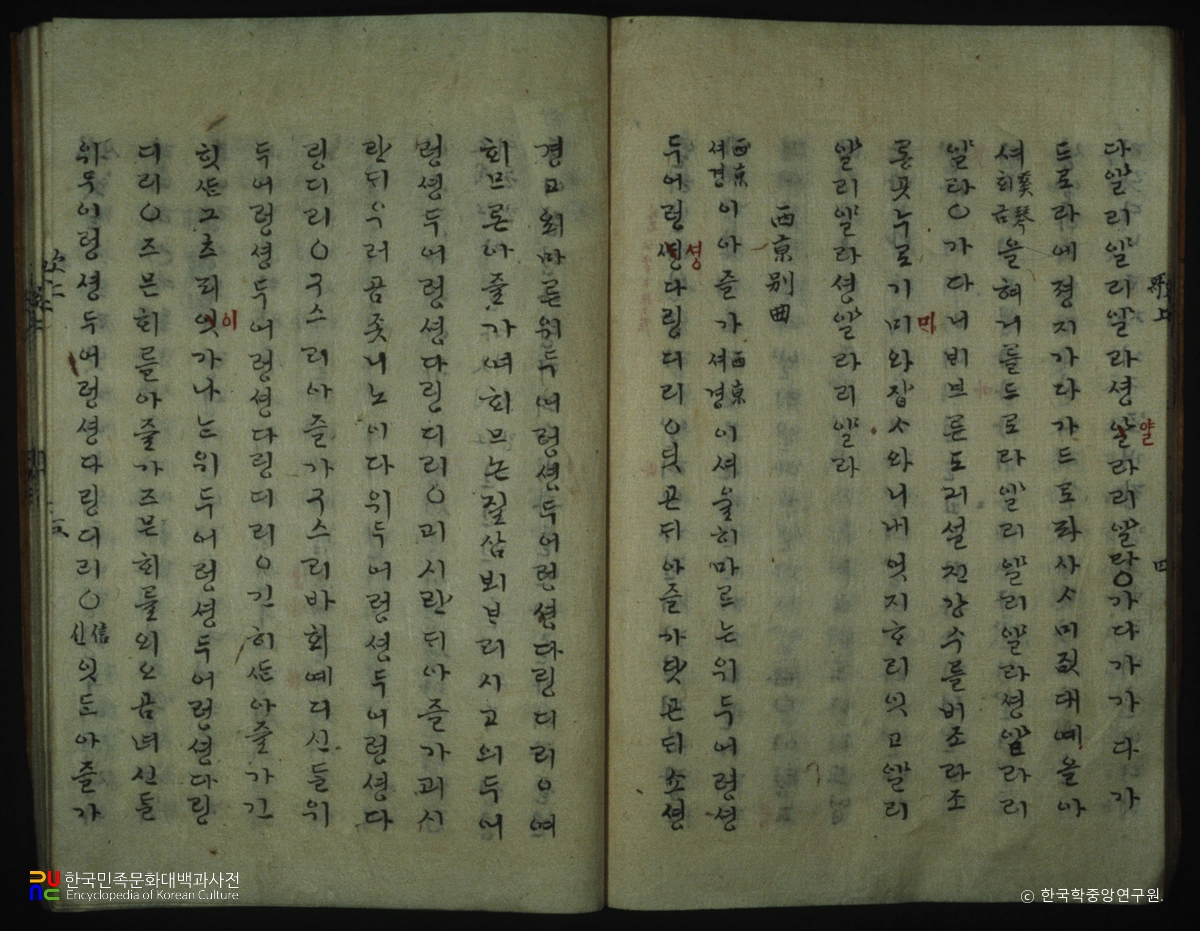 다얄리얄리얄라셩얄라리얄라○가다가가다가
얄
드로라에졍지가다가드로라사ᄉᆞ미짒대예올아
셔奚琴ᄒᆡ금을혀거를드로라얄리얄리얄라셩얄라리
얄라○가다니ᄇᆡ브른도긔설진강수를비조라조
롱곳누로기ᄆᆡ와잡ᄉᆞ와니내엇지ᄒᆞ리잇고얄리
ᄆᆡ
얄리얄라셩얄라리얄라
西京別曲
西京셔경이아즐가西京셔경이셔울히마르는위두어렁셩
두어렁셩다링디리○닷곤ᄃᆡ아즐가닷곤ᄃᆡ쇼셩
셩
경고ᄋᆈ마른위두어렁셩두어렁셩다링디리○여
ᄒᆡ므론아즐가여ᄒᆡ므논질삼뵈ᄇᆞ리시고위두어
렁셩두어렁셩다링디리○괴시란ᄃᆡ아즐가괴시
란ᄃᆡ우러곰좃니노이다위두어렁셩두어렁셩다
링디리○구스리아즐가구스리바회예디신ᄃᆞᆯ위
두어렁셩두어렁셩다링디리○긴히ᄯᆞᆫ아즐가긴
힛ᄯᆞᆫ그츠리잇가나ᄂᆞᆫ위두어렁셩두어렁셩다링
이
디리○즈믄ᄒᆡ를아즐가즈믄ᄒᆡ를외오곰녀신ᄃᆞᆯ
위두어렁셩두어렁셩다링디리○信신잇ᄃᆞᆫ아즐가
한국민족문화대백과사전
Encyclopedia of Korean Culture
ⓒ 한국학중앙연구원.